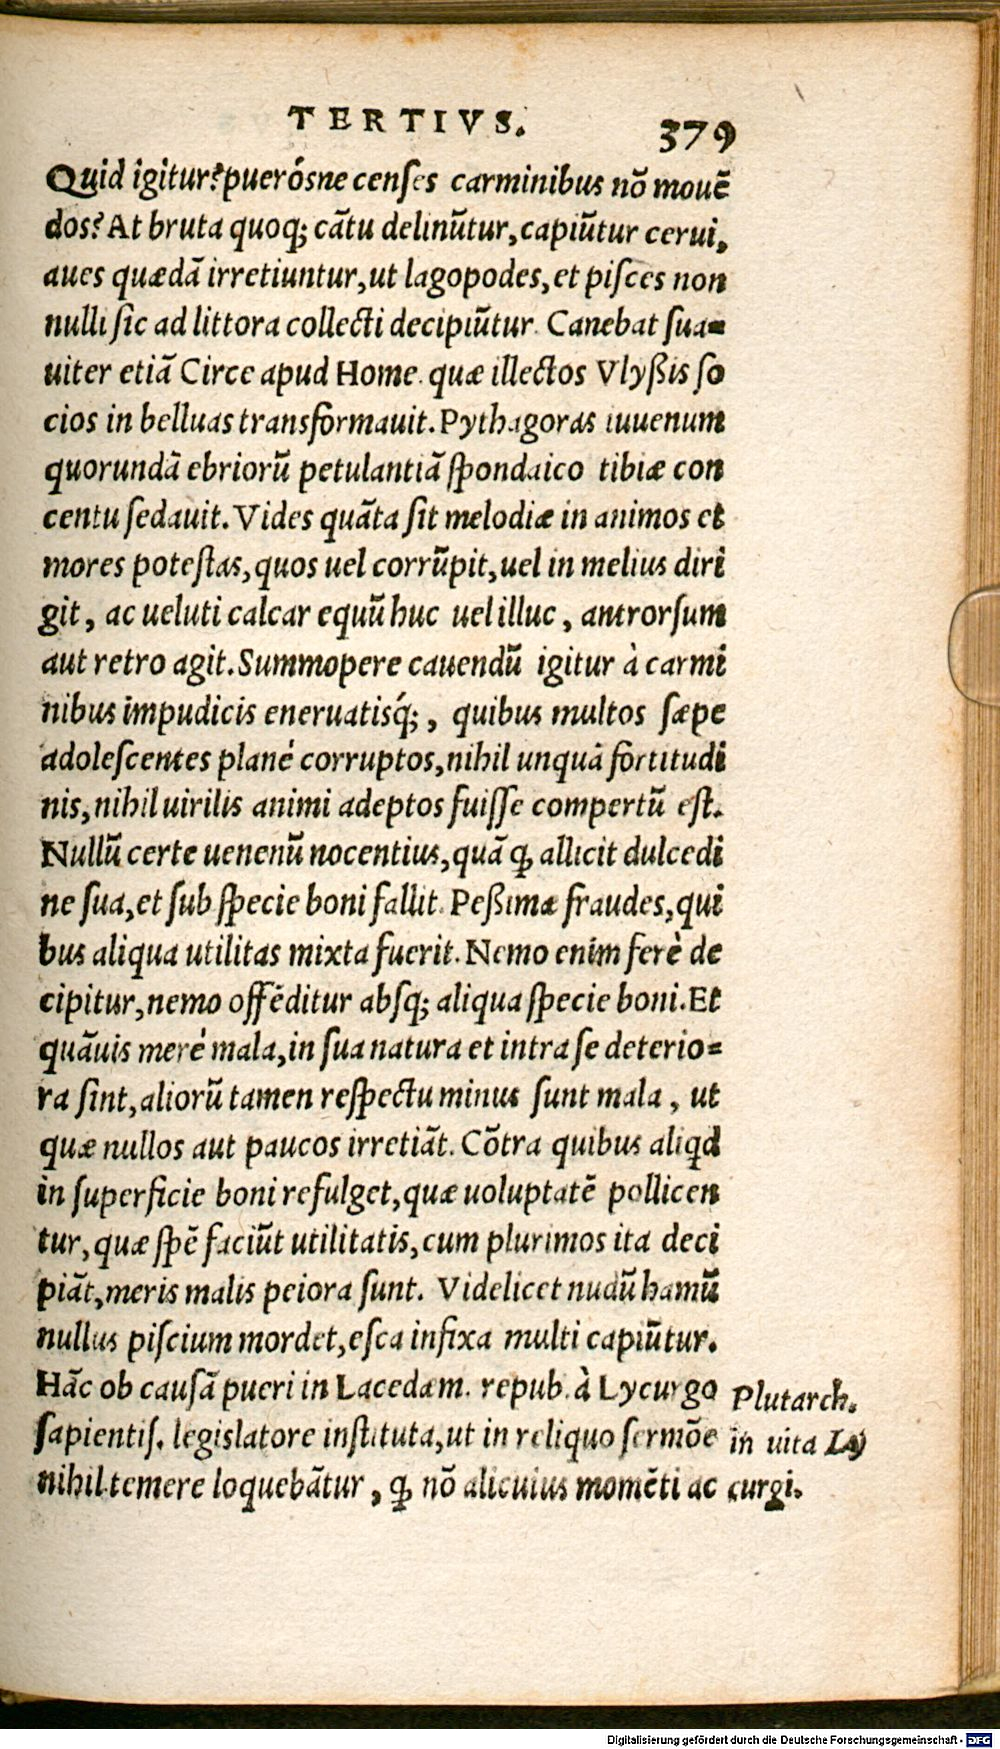 TERTIVS. 379
Quid igitur? puerósne censes carminibus nō mouē
dos? At bruta quoq; cātu delinūtur, capiūtur cerui,
aues quædā irretiuntur, ut lagopodes, et pisces non
nulli sic ad littora collecti decipiūtur. Canebat sua=
uiter etiā Circe apud Home. quæ illectos Vlyßis so
cios in belluas transformauit. Pythagoras iuuenum
quorundā ebriorū petulantiā spondaico tibiæ con
centu sedauit. Vides quāta sit melodiæ in animos et
mores potestas, quos uel corrūpit, uel in melius diri
git, ac ueluti calcar equū huc uel illuc, antrorsum
aut retro agit. Summopere cauendū igitur à carmi
nibus impudicis eneruatisq́;, quibus multos sæpe
adolescentes planè corruptos, nihil unquā fortitudi
nis, nihil uirilis animi adeptos fuisse compertū est.
Nullū certe uenenū nocentius, quā ꝙ allicit dulcedi
ne sua, et sub specie boni fallit. Peßimæ fraudes, qui
bus aliqua utilitas mixta fuerit. Nemo enim ferè de
cipitur, nemo offēditur absq; aliqua specie boni. Et
quāuis merè mala, in sua natura et intra se deterio=
ra sint, aliorū tamen respectu minus sunt mala, ut
quæ nullos aut paucos irretiāt. Cōtra quibus aliqd
in superficie boni refulget, quæ uoluptatē pollicen
tur, quæ spē faciūt utilitatis, cum plurimos ita deci
piāt, meris malis peiora sunt. Videlicet nudū hamū
nullus piscium mordet, esca infixa multi capiūtur.
Hāc ob causā pueri in Lacedæm. repub. à Lycurgo
sapientis. legislatore instituta, ut in reliquo sermōe
nihil temere loquebātur, ꝙ nō alicuius momēti ac
Plutarch.
in uita Ly
curgi.
Digitalisierung gefördert durch die Deutsche Forschungsgemeinschaft - DFG